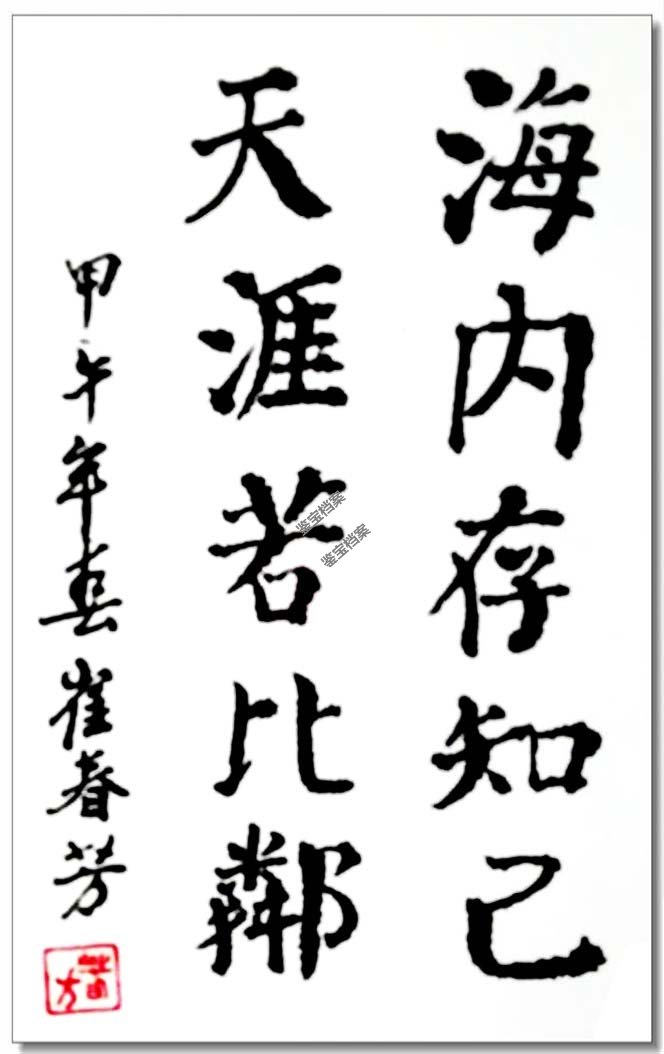 海内存知己
天涯若比鄰
甲午年春崔春芳
鉴宝档案
鉴宝档案